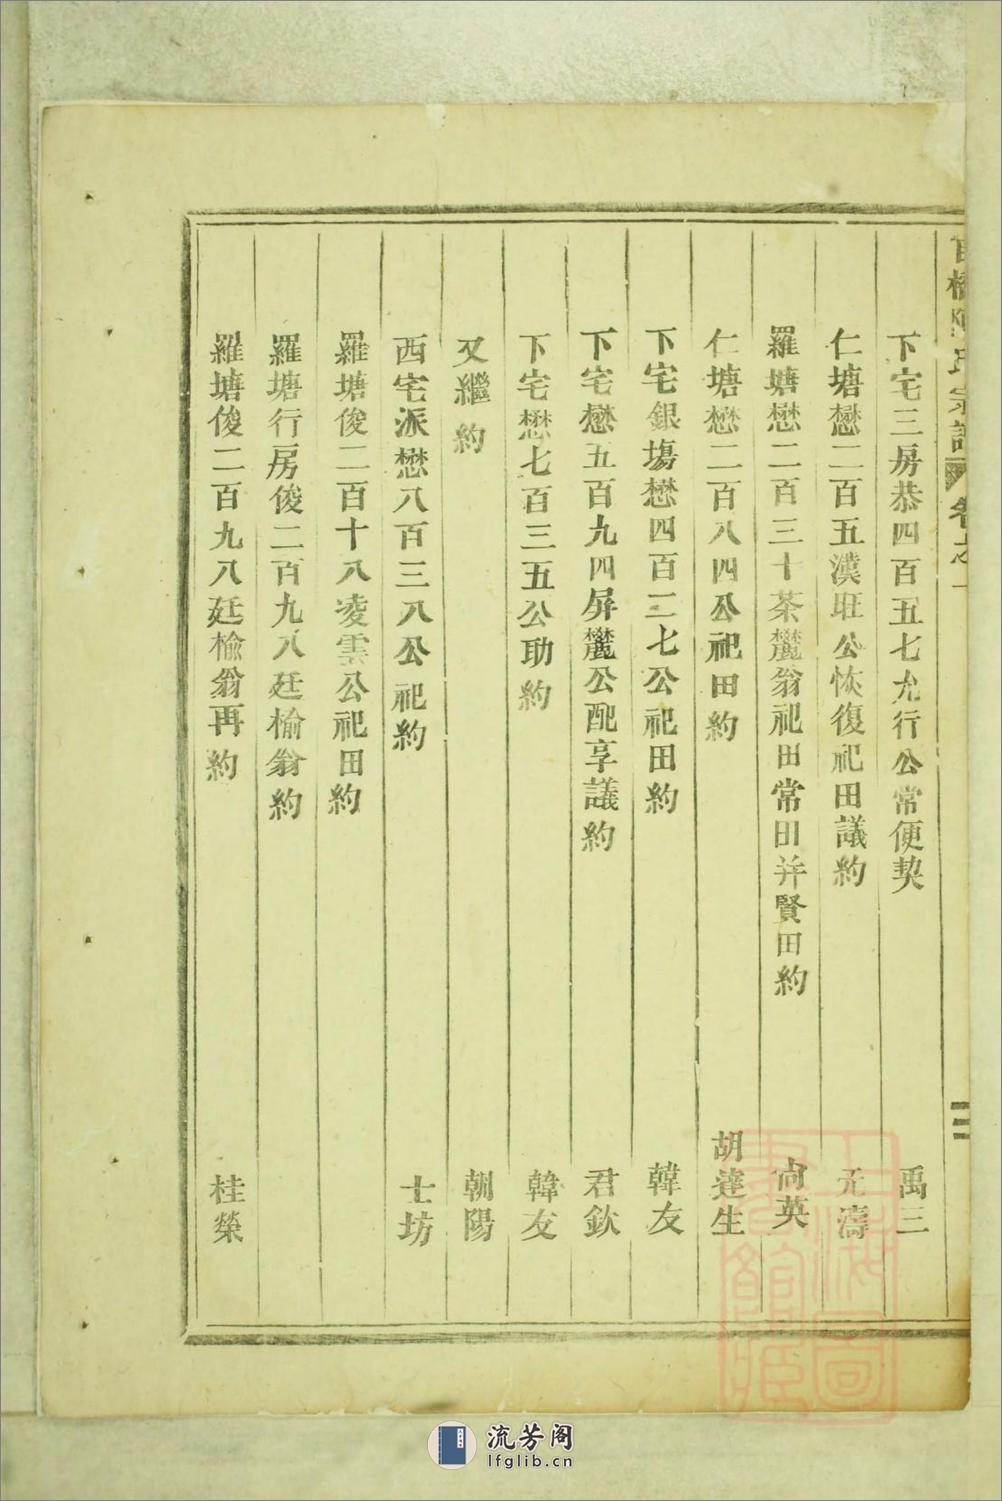 宗譜 卷之一
三
下宅三房恭四百五七尤行公常便契 禹三
仁塘懋二百五漢旺公恢復祀田議約 元濤
羅塘懋二百三十茶麓翁祀田常田并賢田約 尙英
仁塘懋二百八四公祀田約 胡達生
下宅銀塲懋四百二七公祀田約 韓友
下宅懋五百九四屏麓公配享議約 君欽
下宅懋七百三五公助約 韓友
又繼約 朝陽
西宅派懋八百三八公祀約 士坊
羅塘俊二百十八凌雲公祀田約
羅塘行房俊二百九八廷榆翁約
羅塘俊二百九八廷榆翁再約 桂榮
上海圖書館藏
流芳阁
lfglib.cn